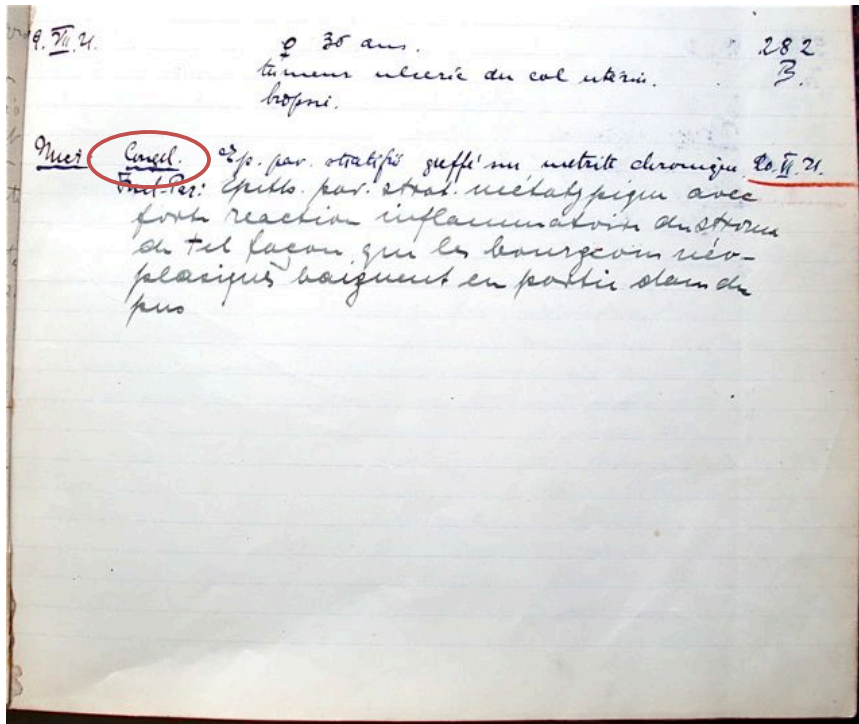 9. VII. 21. ♀ 36 ans. 282
tumeur ulcérée du col utérin. B.
biopsie.
Congel. Ep. pav. stratifié greffé sur metrite chronique. 20. VII. 21.
Epith. pav. strat. métatypique avec
forte reaction inflammatoire du stroma
de tel façon que les bourgeons néo-
plasiques baignent en partie dans du
pus